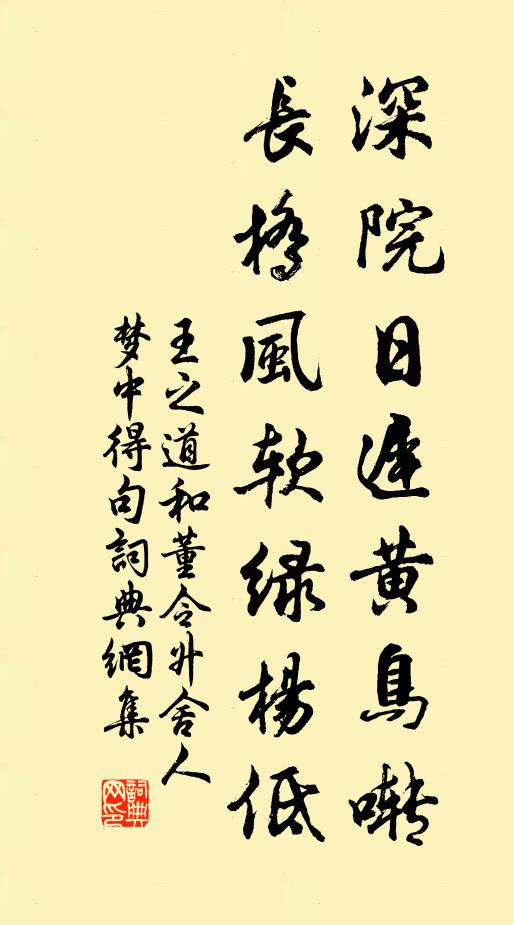 深院日遲黄鳥啭
長橋風软緑楊低
王之道和董令升舍人
梦中得句詞典網集
詞典网印